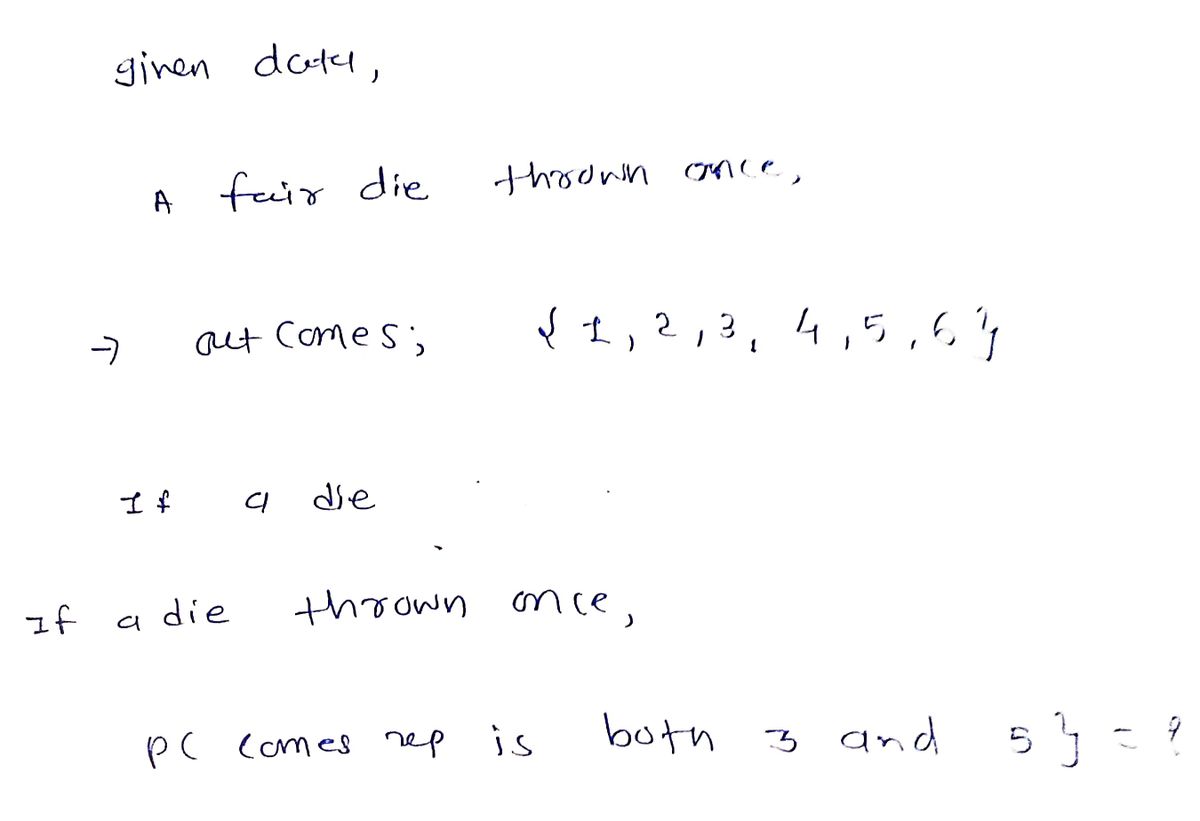 given data,
A fair die thrown once,
→ out comes; { 1, 2, 3, 4, 5, 6 }
If a die
If a die thrown once,
P( comes up is both 3 and 5 } = ?